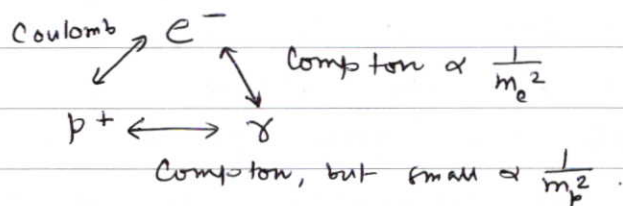 Coulomb e⁻
Compton ∝ 1/mₑ²
p⁺ ⟷ γ
Compton, but small ∝ 1/mₚ².